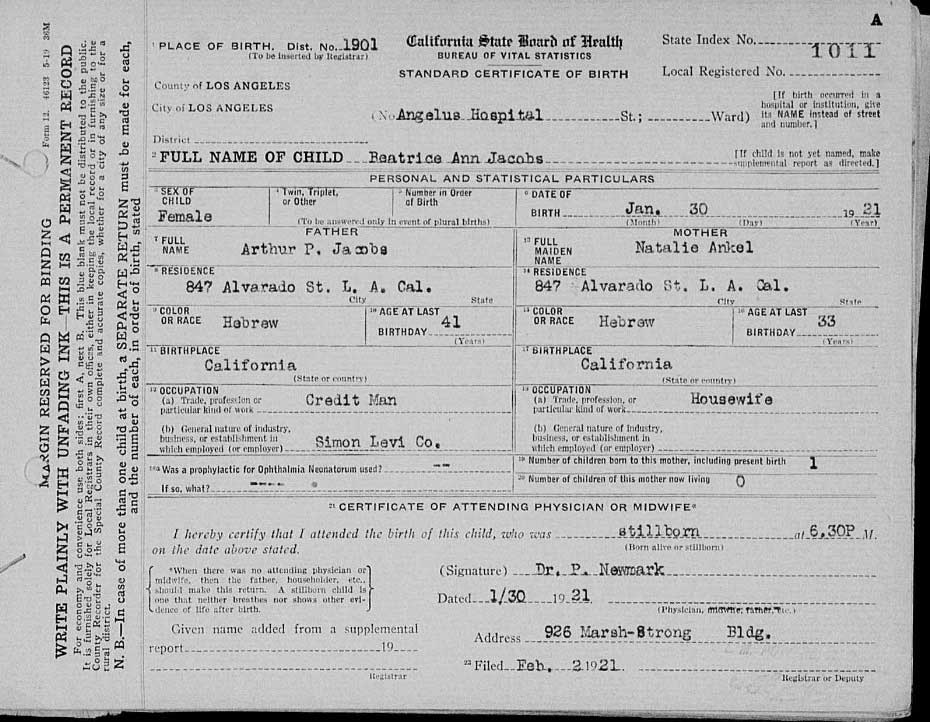 A
1 PLACE OF BIRTH. Dist. No. 1901
(To be inserted by Registrar)
California State Board of Health
BUREAU OF VITAL STATISTICS
STANDARD CERTIFICATE OF BIRTH
State Index No.
1011
Local Registered No.
County of LOS ANGELES
City of LOS ANGELES
(No Angelus Hospital St.; Ward)
[If birth occurred in a
hospital or institution, give
its NAME instead of street
and number.]
District
2 FULL NAME OF CHILD Beatrice Ann Jacobs
[If child is not yet named, make
supplemental report as directed.]
PERSONAL AND STATISTICAL PARTICULARS
3 SEX OF
CHILD
Female
4 Twin, Triplet,
or Other
5 Number in Order
of Birth
(To be answered only in event of plural births)
6 DATE OF
BIRTH Jan. 30 1921
(Month) (Day) (Year)
FATHER
7 FULL
NAME Arthur P. Jacobs
8 RESIDENCE
847 Alvarado St. L. A. Cal.
City State
9 COLOR
OR RACE Hebrew
10 AGE AT LAST
BIRTHDAY 41
(Years)
11 BIRTHPLACE
California
(State or country)
12 OCCUPATION
(a) Trade, profession or
particular kind of work Credit Man
(b) General nature of industry,
business, or establishment in
which employed (or employer) Simon Levi Co.
MOTHER
13 FULL
MAIDEN
NAME Natalie Ankel
14 RESIDENCE
847 Alvarado St. L. A. Cal.
City State
15 COLOR
OR RACE Hebrew
16 AGE AT LAST
BIRTHDAY 33
(Years)
17 BIRTHPLACE
California
(State or country)
18 OCCUPATION
(a) Trade, profession, or
particular kind of work Housewife
(b) General nature of industry,
business, or establishment in
which employed (or employer)
19a Was a prophylactic for Ophthalmia Neonatorum used? --
If so, what? ----
19 Number of children born to this mother, including present birth 1
20 Number of children of this mother now living 0
21 CERTIFICATE OF ATTENDING PHYSICIAN OR MIDWIFE*
I hereby certify that I attended the birth of this child, who was stillborn at 6.30P M.
(Born alive or stillborn)
on the date above stated.
*When there was no attending physician or
midwife, then the father, householder, etc.,
should make this return. A stillborn child is
one that neither breathes nor shows other evi-
dence of life after birth.
(Signature) Dr. P. Newmark
Dated 1/30 1921
(Physician, midwife, father, etc.)
Given name added from a supplemental
report 19
Registrar
Address 926 Marsh-Strong Bldg.
22 Filed Feb. 2 1921
Registrar or Deputy
MARGIN RESERVED FOR BINDING
Form 12. 46123 5-19 36M
WRITE PLAINLY WITH UNFADING INK THIS IS A PERMANENT RECORD
For economy and convenience use both sides; first A, next B. This blue blank must not be distributed to the public.
It is furnished solely for Local Registrars in their own offices, either in keeping the local record or in furnishing to the
County Recorder for the Special County Record complete and accurate copies, whether for a city of any size or for a
rural district.
N. B.—In case of more than one child at birth, a SEPARATE RETURN must be made for each,
and the number of each, in order of birth, stated